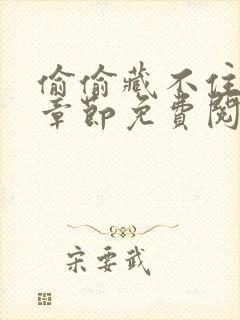 偷偷藏不住
章節免費閱
宋要武